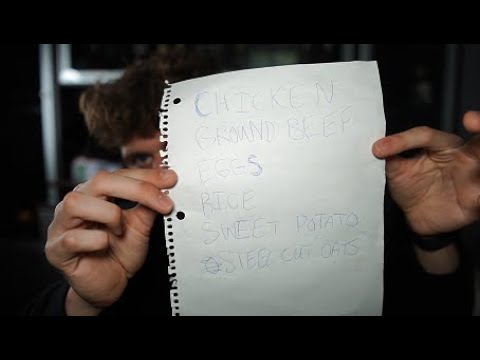 CHICKEN
GROUND BEEF
EGGS
RICE
SWEET POTATO
STEEL CUT OATS